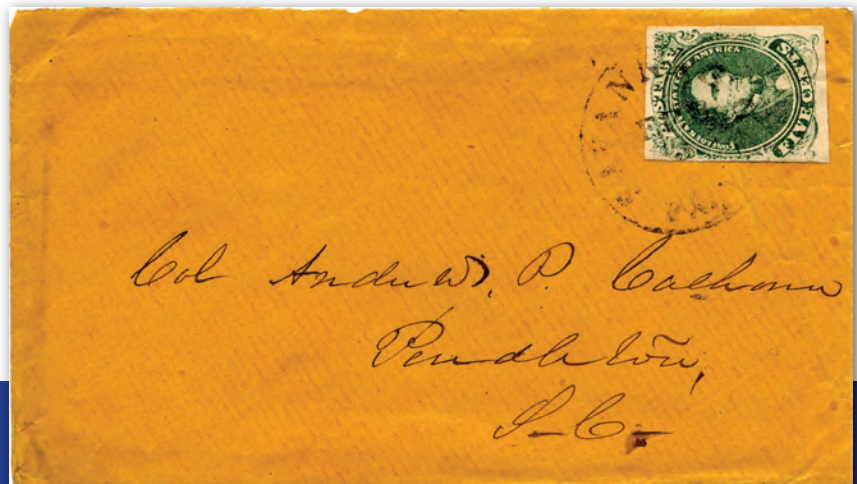 POSTAGE
CONFEDERATE STATES OF AMERICA
FIVE CENTS
PAID
Col Andrew P. Calhoun
Pendleton,
S-C-